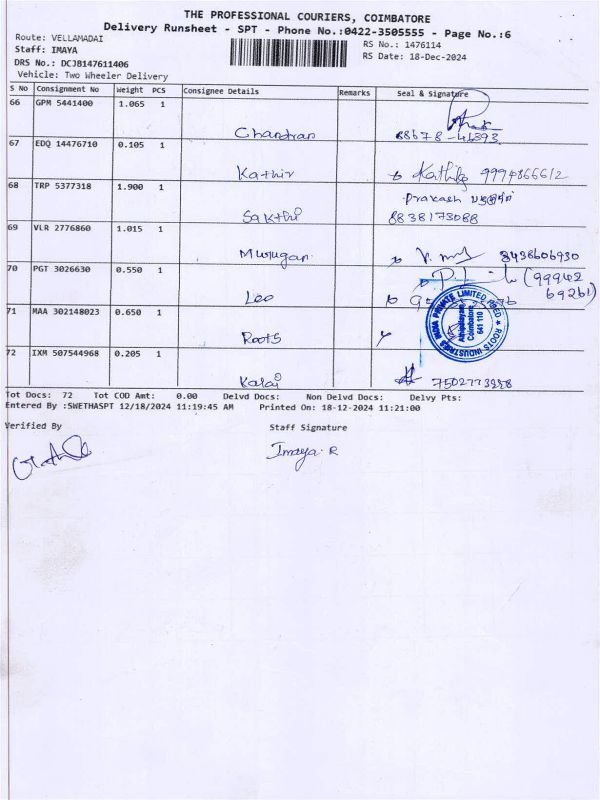 THE PROFESSIONAL COURIERS, COIMBATORE
Delivery Runsheet - SPT - Phone No.:0422-3505555 - Page No.:6
Route: VELLAMADAI
RS No.: 1476114
Staff: IMAYA
RS Date: 18-Dec-2024
DRS No.: DCJB147611406
Vehicle: Two Wheeler Delivery
S No Consignment No Weight PCS Consignee Details Remarks Seal & Signature
66 GPM 5441400 1.065 1
Chandran 88678-46393
67 EDQ 14476710 0.105 1
Kathir Kathir 9994866612
68 TRP 5377318 1.900 1 Prakash
Sakthi 8838173088
69 VLR 2776860 1.015 1
Murugan 8438606930
70 PGT 3026630 0.550 1 (99942
Leo 69261)
71 MAA 302148023 0.650 1
Roots
ROOTS INDUSTRIES INDIA PRIVATE LIMITED
Coimbatore
641 110
72 IXM 507544968 0.205 1
Kalai 7502773958
Tot Docs: 72 Tot COD Amt: 0.00 Delvd Docs: Non Delvd Docs: Delvy Pts:
Entered By :SWETHASPT 12/18/2024 11:19:45 AM Printed On: 18-12-2024 11:21:00
Verified By Staff Signature
Imaya. R